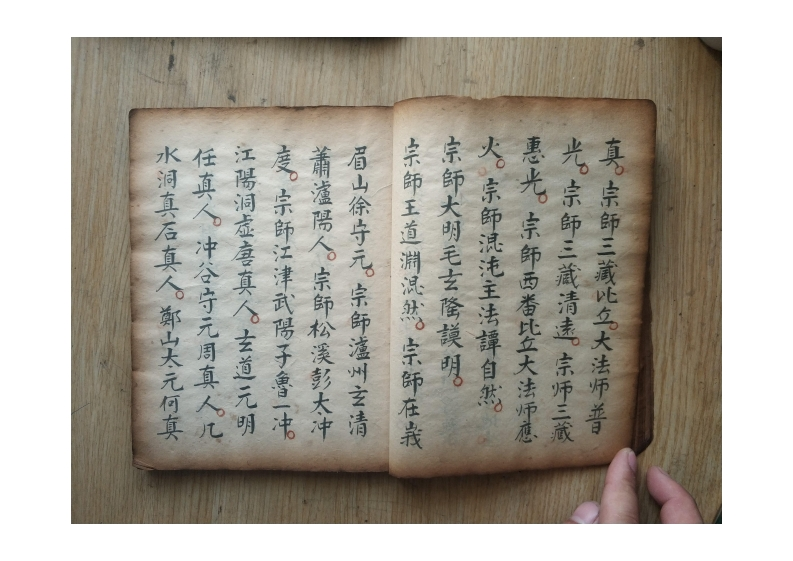 真。宗師三藏比立大法师普
光。宗師三藏清遠。宗师三藏
惠光。宗師西番比立大法师應
火。宗師混沌主法譚自然。
宗師大明毛玄隆謨明。
宗師王道淵混然。宗師在峩
眉山徐守元。宗師瀘州玄清
蕭瀘陽人。宗師松溪彭大冲
度。宗師江津武陽子魯一冲。
江陽洞虚唐真人。玄道元明
任真人。冲谷守元周真人。凡
水洞真石真人。鄭山太元何真